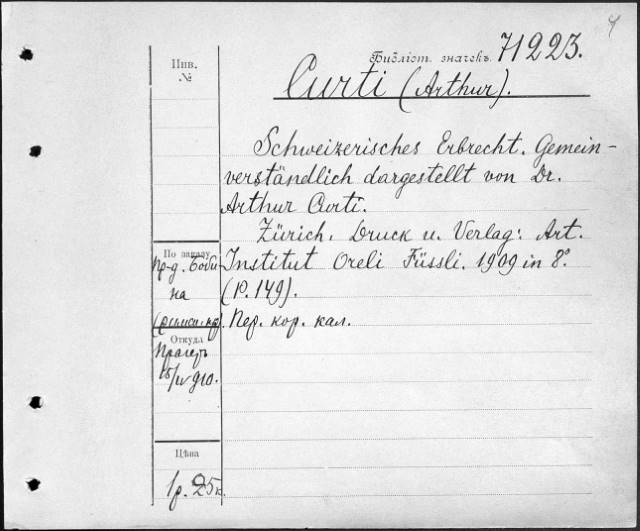 4
Библіот. значекъ 71223.
Инв.
№
Curti (Arthur).
Schweizerisches Erbrecht. Gemein-
verständlich dargestellt von Dr.
Arthur Curti.
Zürich, Druck u. Verlag: Art.
Institut Oreli Füssli. 1909 in 8°
(P. 149).
Пер. кор. кал.
По заказу
Пр-д. Боби-
на
Откуда
Прагеръ
910.
Цѣна
1р. 25к.